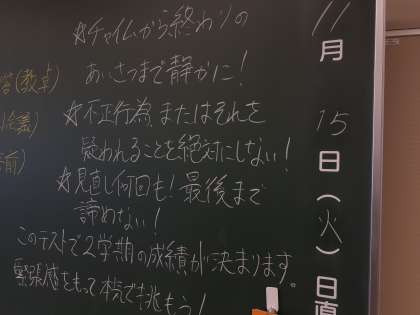 ☆チャイムから終わりの
あいさつまで静かに!
☆不正行為、またはそれを
疑われることを絶対にしない!
☆見直し何回も!最後まで
諦めない!
このテストで2学期の成績が決まります。
緊張感をもって本気で挑もう!
答(教卓)
義)
前)
11
月
15
日
(火)
日直